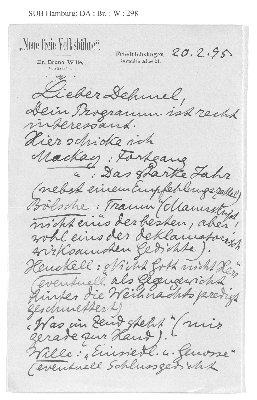 SUB Hamburg: DA : Br. : W : 298
„Neue freie Volksbühne“
Dr. Bruno Wille,
Friedrichshagen 20.2.95
Lieber Dehmel,
Dein Programm ist recht
interessant.
Hier schicke ich
Mackay: Fortgang
" : Das starke Jahr
(nebst einem Empfehlungszettel)
Bölsche: Traum
nicht eins der besten, aber
wohl eins der deklamatorisch
wirksamsten Gedichte).
Henckell: „Nicht Gott nicht Herr“
(eventuell als Gegengewicht
hinter die Weihnachtspredigt
geschmettert)
„Was im Zend steht“ (mir
gerade zur Hand).
Wille: „Einsiedl. u. Genosse“
(eventuell Schlussgedicht